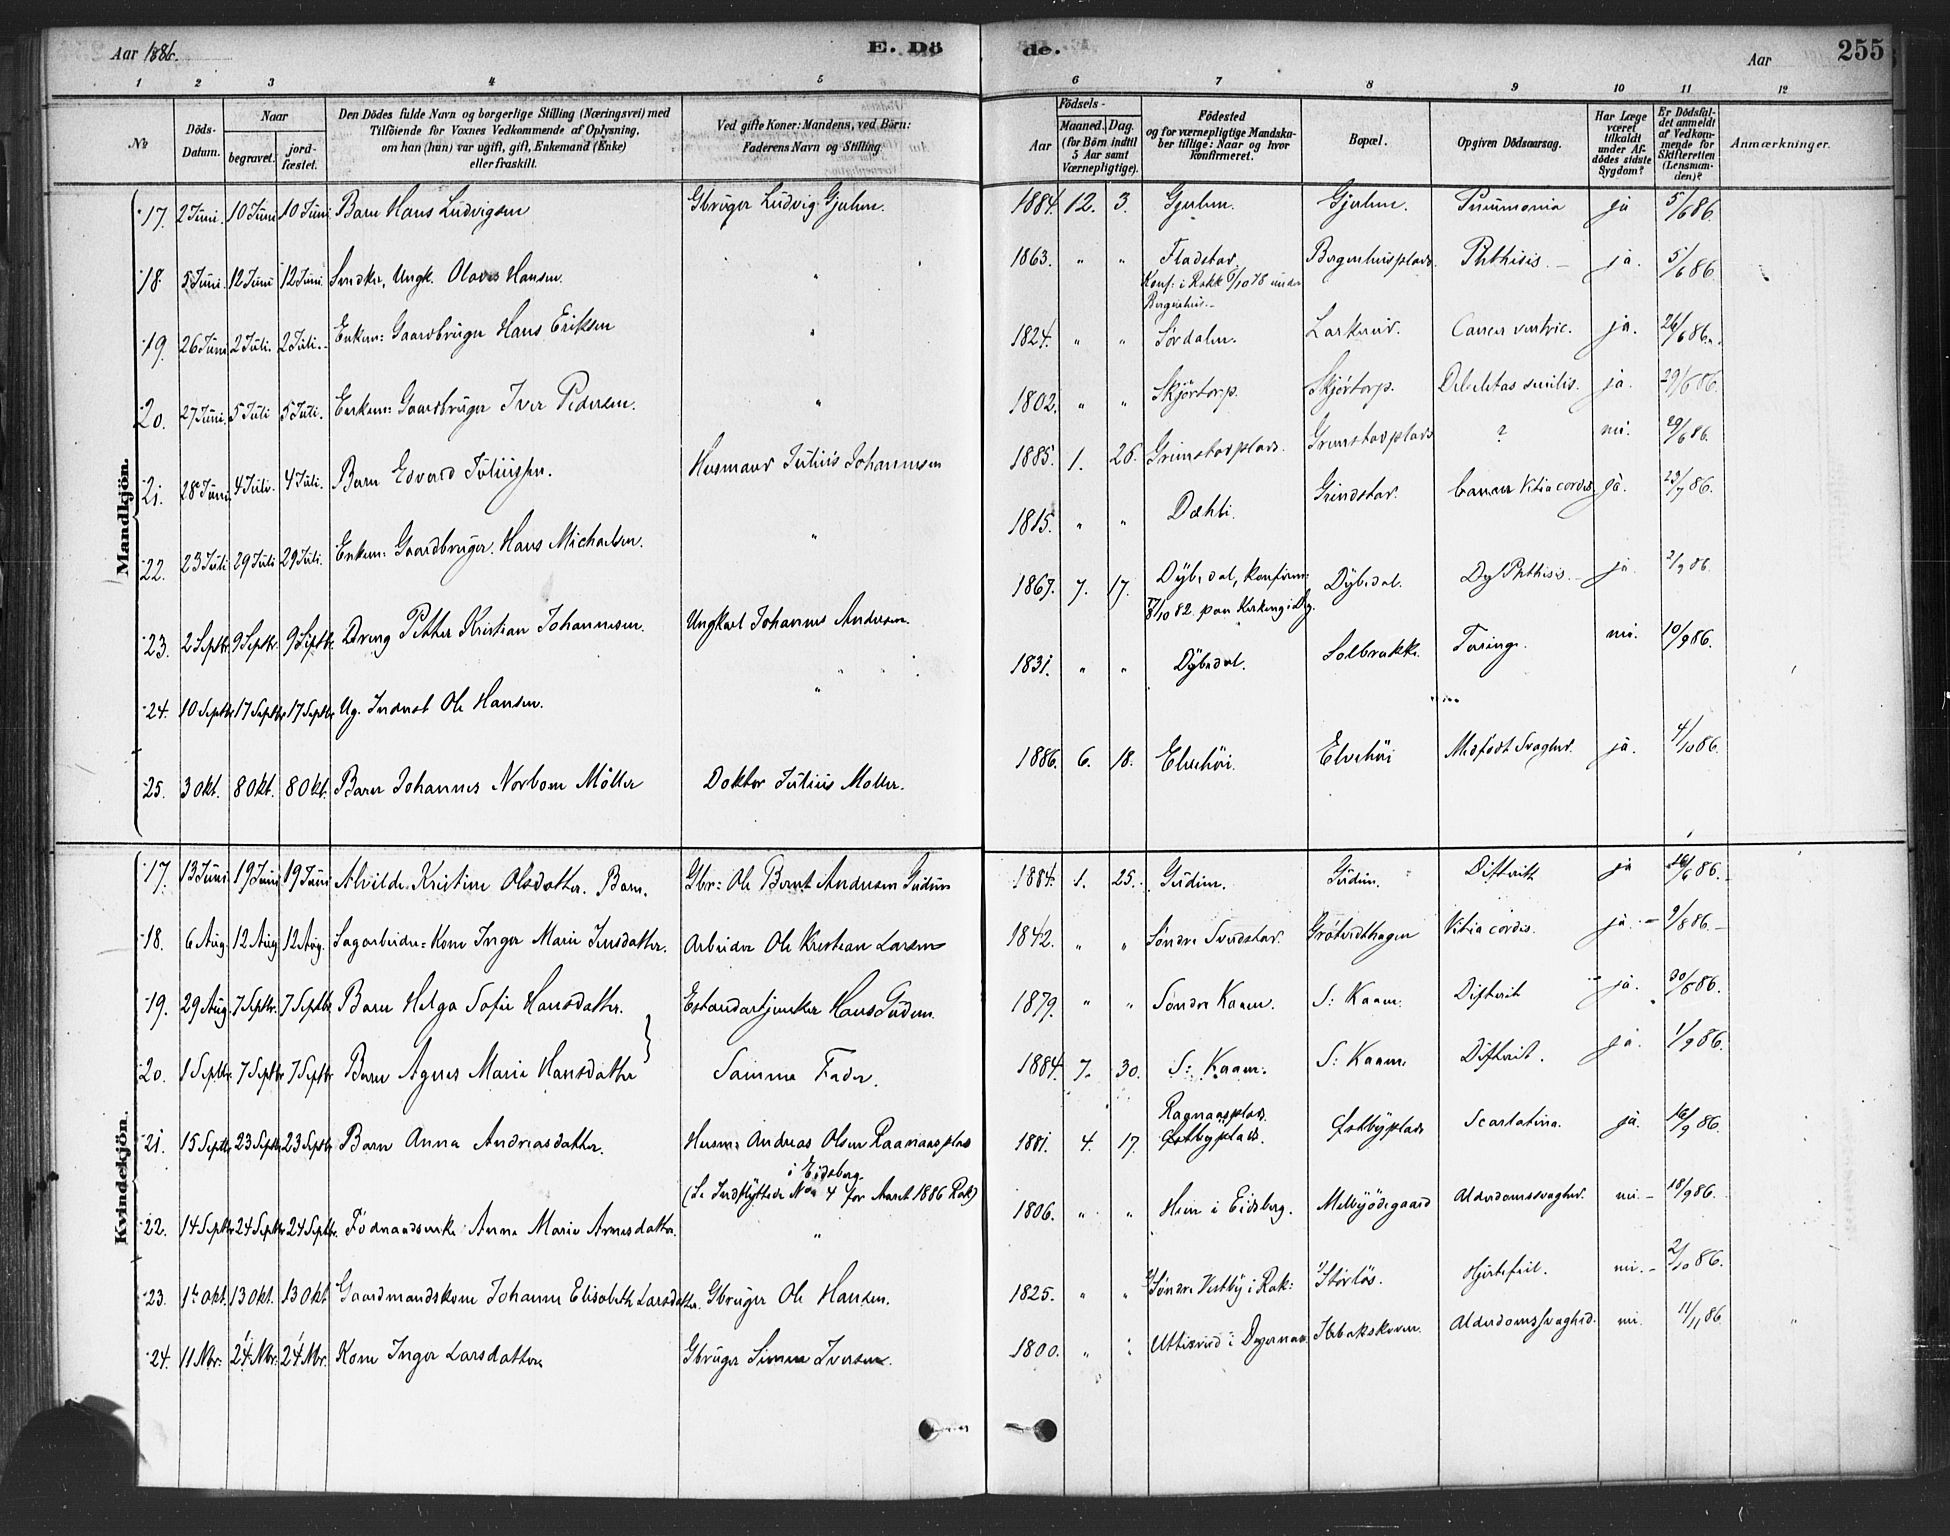 Aar 1886. E. Dö de. Aar 255
1 2 3 4 5 6 7 8 9 10 11 12
No
Döds-Datum.
Naar begravet. jord-fæstet.
Den Dödes fulde Navn og borgerlige Stilling (Næringsvei) med Tilföiende for Voxnes Vedkommende af Oplysning, om han (hun) var ugift, gift, Enkemand (Enke) eller fraskilt.
Ved gifte Koner: Mandens, ved Börn: Faderens Navn og Stilling.
Födsels-
Aar Maaned. Dag. (for Börn indtil 5 Aar samt Værnepligtige).
Födested og for værnepligtige Mandskaber tillige: Naar og hvor konfirmeret.
Bopæl.
Opgiven Dödsaarsag.
Har Læge været tilkaldt under Afdödes sidste Sygdom?
Er Dödsfaldet anmeldt af Vedkommende for Skifteretten (Lensmanden)?
Anmærkninger.
Mandkjön.
17. 2 Juni. 10 Juni 10 Juni Barn Hans Ludvigsen Gbruger Ludvig Gjulem. 1884. 12. 3. Gjulem. Gjulem. Pneumonia ja 5/6 86.
18. 5 Juni. 12 Juni 12 Juni. Ungk. Olaves Hansen. " 1863. " " Fladstad. Bergerhusplads. Phthisis. ja. 5/6 86
Konf: i Rakk 6/10 78 under
19. 26 Juni 2 Juli. 2 Juli. Enkem: Gaardbruger Hans Eriksen " 1824. " " Sørdalen. Cancer ventric. ja. 26/6 86.
20. 27 Juni. 5 Juli 5 Juli. Enkem: Gaardbruger Iver Pedersen. " 1802. " " Skjörtorp. Skjörtorp. Debilitas senilis. ja. 29/6 86.
21. 28 Juni 4 Juli. 4 Juli. Barn Edvard Juliussen. Husmand Julius Johannesen 1885. 1. 26. Grimstadplads. Grimstadplads ? nei. 29/6 86.
22. 23 Juli 29 Juli 29 Juli. Enkem: Gaardbruger. Hans Michaelsen. " 1815. " " Dæhli. Grindstad. Cancer Vitia cordis ja. 23/7 86.
23. 2 Septbr. 9 Septbr. 9 Septbr. Dreng Petter Kristian Johannesen. Ungkarl Johannes Andersen 1867. 7. 17. Dybedal, konfirm: 8/10 82 Dybedal. Phthisis. ja. 2/9 86
24. 10 Septbr 17 Septbr 17 Septbr Ug. Inderst Ole Hansen. " 1831. " " Dybedal. Solbrække. Tæring. nei. 10/9 86.
25. 3 Okt. 8 Okt. 8 Okt. Barn Johannes Norbom Möller Doktor Julius Möller. 1886. 6. 18. Elvehöi. Elvehöi Medfödt Svaghed. ja. 4/10 86.
Kvindekjön.
17. 13 Juni 19 Juni 19 Juni Alvilde Kristine Olsdatter. Barn. Gbr: Ole Bernt Andersen Gudim 1884. 1. 25. Gudim. Gudim. Difterit ja 14/6 86.
18. 6 Aug. 12 Aug 12 Aug. Sagarbeider-Kone Inger Marie Jensdatter. Arbeider Ole Kristian Larsen 1842. " " Söndre Svedstad. Grötvedthagen Vitia cordis. ja. 9/8 86.
19. 29 Aug. 7 Septbr. 7 Septbr. Barn Helga Sofie Hansdatter. Hans Gudim. 1879. " " Söndre Kaam. S: Kaam. Difterit ja. 30/8 86.
20. 1 Septbr. 7 Septbr 7 Septbr Barn Agnes Marie Hansdatter Samme Fader. 1884. 7. 30. S: Kaam. S: Kaam. Difterit. ja. 1/9 86.
21. 15 Septbr 23 Septbr 23 Septbr Barn Anna Andreasdatter. Husm: Andreas Olsen Raanaasplads i Eidsberg. 1881. 4. 17. Ragnaasplads. Østbyplads. Østbyplads Scarlatina. ja. 16/9 86.
(Se Indflyttede No 4 for Aaret 1886 Rak)
22. 14 Septbr 24 Septbr 24 Septbr. Födraadsenke Anne Marie Arnesdatter. " 1806. " " Hein i Eidsberg. Melbyödegaard Alderdomssvaghed. nei. 18/9 86.
23. 1te Okt. 13 Okt. 13 Okt. Gaardmandskone Johanne Elisabeth Larsdatter. Gbruger Ole Hansen. 1825. " " Söndre Vestby i Rak: Störlös. Hjertefeil. nei. 2/10 86.
24. 11 Nbr: 24 Nbr. 24 Nbr. Kone Inger Larsdatter Gbruger Simen Iversen. 1800. " " i Degernæs. Alderdomssvaghed. nei. 11/11 86.